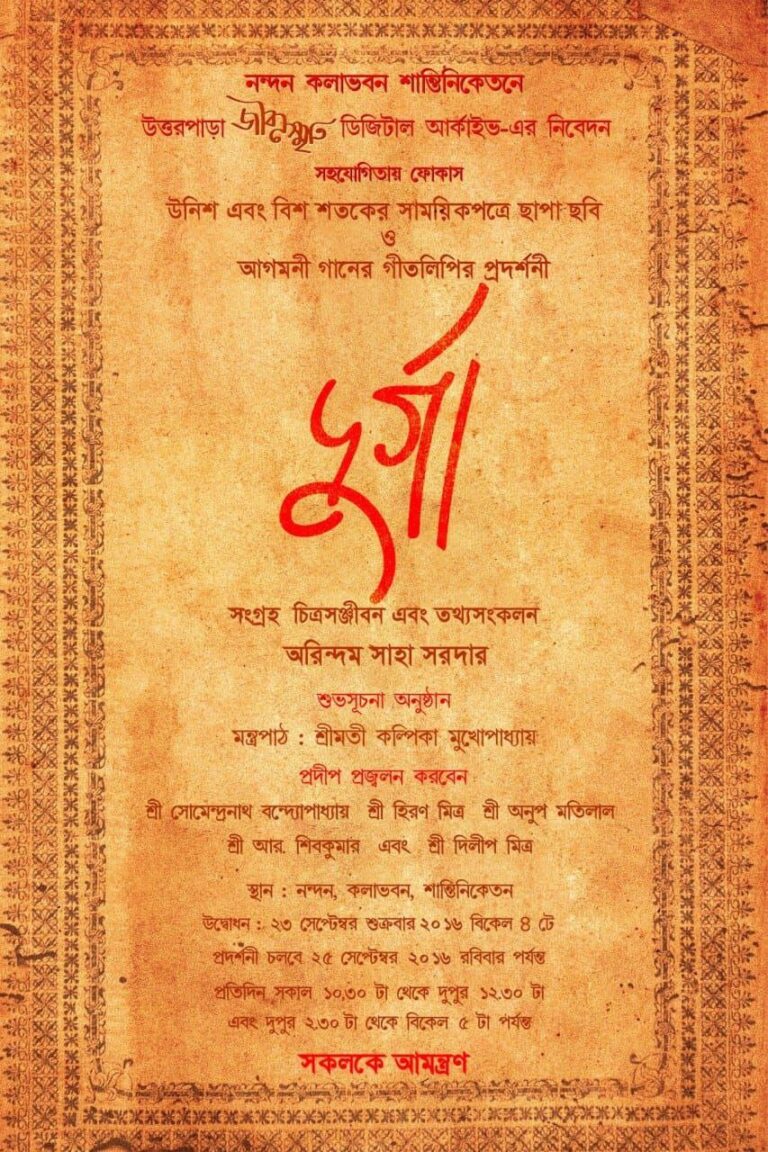 নন্দন কলাভবন শান্তিনিকেতনে
উত্তরপাড়া জীবনস্মৃতি ডিজিটাল আর্কাইভ-এর নিবেদন
সহযোগিতায় ফোকাস
উনিশ এবং বিশ শতকের সাময়িকপত্রে ছাপা ছবি
ও
আগমনী গানের গীতলিপির প্রদর্শনী
দুর্গা
সংগ্রহ চিত্রসঞ্জীবন এবং তথ্যসংকলন
অরিন্দম সাহা সরদার
শুভসূচনা অনুষ্ঠান
মন্ত্রপাঠ : শ্রীমতী কল্পিকা মুখোপাধ্যায়
প্রদীপ প্রজ্বলন করবেন
শ্রী সোমেন্দ্রনাথ বন্দ্যোপাধ্যায় শ্রী হিরণ মিত্র শ্রী অনুপ মতিলাল
শ্রী আর. শিবকুমার এবং শ্রী দিলীপ মিত্র
স্থান : নন্দন, কলাভবন, শান্তিনিকেতন
উদ্বোধন : ২৩ সেপ্টেম্বর শুক্রবার ২০১৬ বিকেল ৪ টে
প্রদর্শনী চলবে ২৫ সেপ্টেম্বর ২০১৬ রবিবার পর্যন্ত
প্রতিদিন সকাল ১০.৩০ টা থেকে দুপুর ১২.৩০ টা
এবং দুপুর ২.৩০ টা থেকে বিকেল ৫ টা পর্যন্ত
সকলকে আমন্ত্রণ